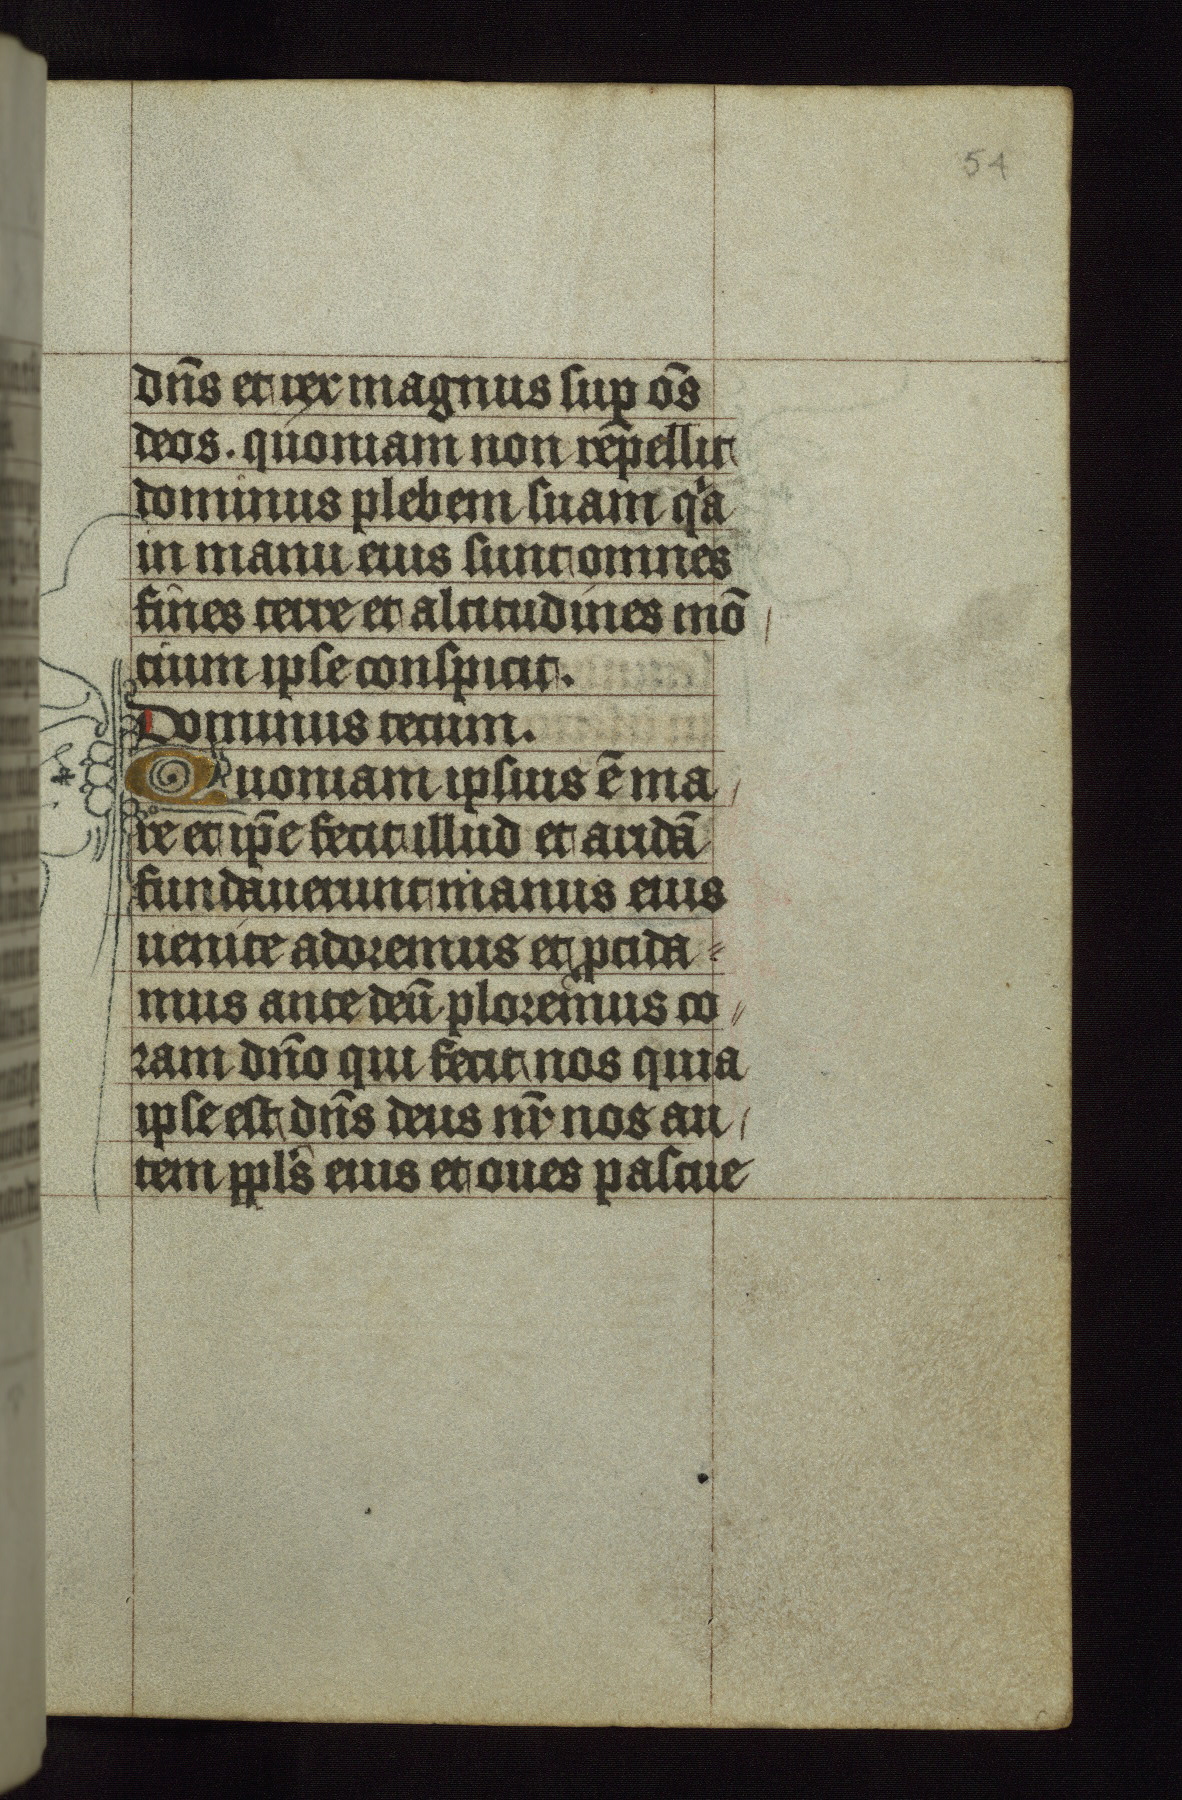 54
dn̄s et rex magnus sup om̄s
deos. quoniam non repellit
dominus plebem suam qᷓa
in manu eius sunt omnes
fines terre et altitudines mō
tium ipse conspicit.
Dominus tecum.
Quoniam ipsius ē ma
re et ip̄e fecit illud et aridā
fundauerunt manus eius
uenite adoremus et pcida-
mus ante deū ploremus co
ram dn̄o qui fecit nos quia
ipse est dn̄s deus nr̄ nos au
tem ppls̄ eius et oues pascue